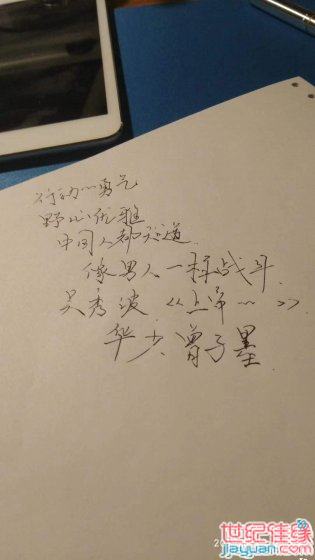 行动的勇气
野心优雅
中国人都知道
像男人一样战斗
吴秀波 《上帝的 》
华少 曾子墨
世纪佳缘
jiayuan.com